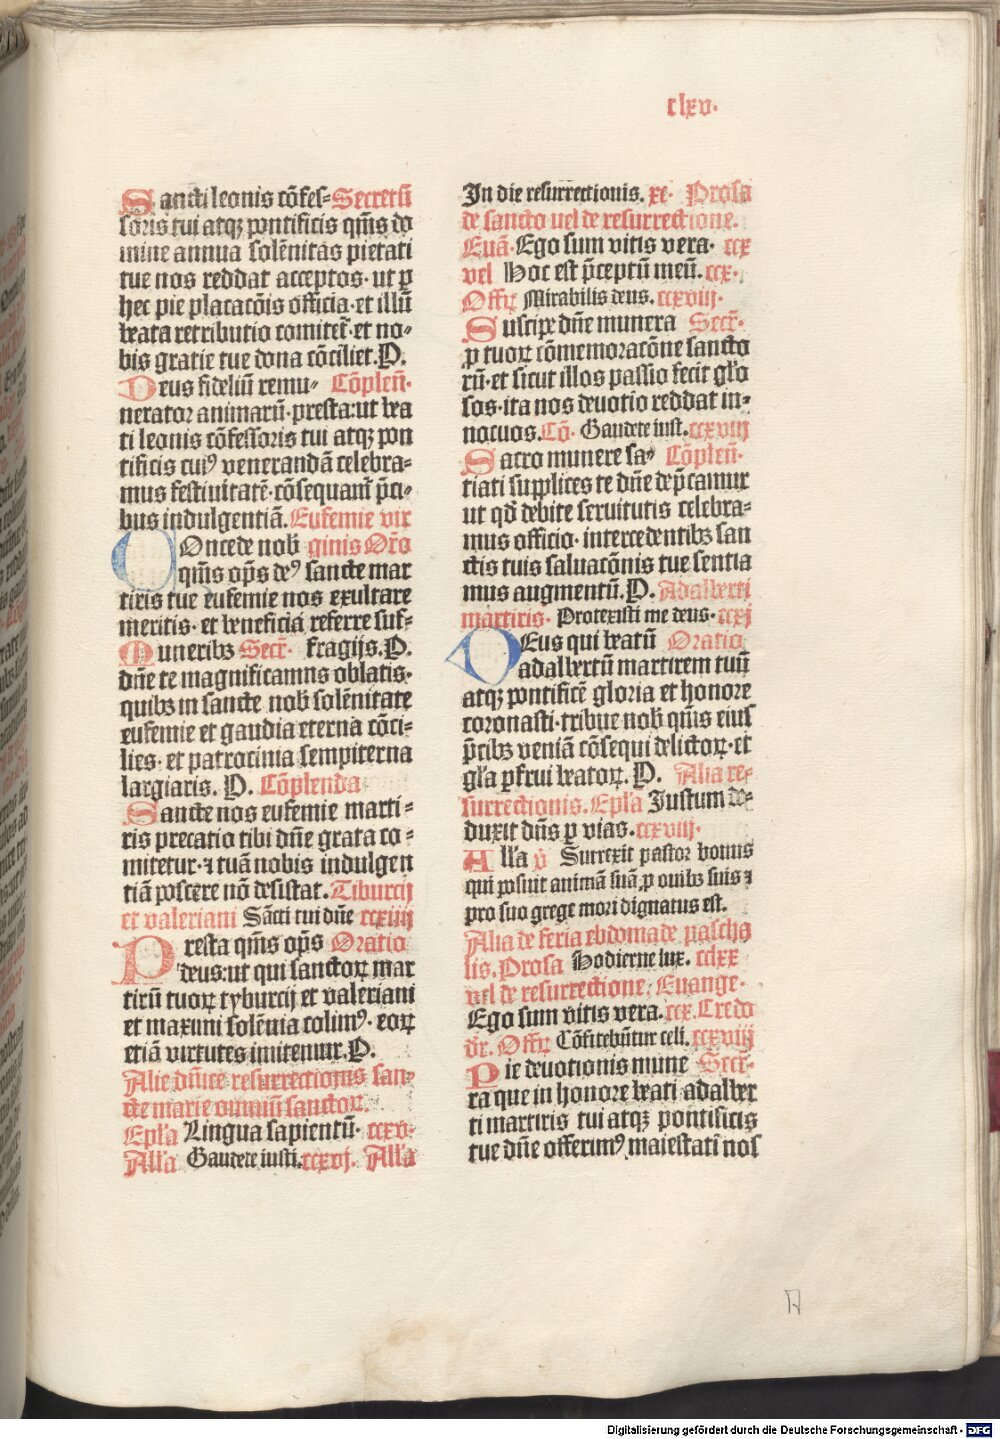 clxv.
Sancti leonis cōfes= Secretū
soris tui atqꝫ pontificis qm̄s do
mine annua solēnitas pietati
tue nos reddat acceptos· ut ꝑ
hec pie placacōis officia· et illū
beata retributio comitet̄· et no-
bis gratie tue dona cōciliet. P.
Deus fidelíū remu- Cōplen̄·
nerator animarū· presta: ut bea
ti leonis cōfessoris tui atqꝫ pon
tificis cuiꝰ venerandā celebra-
mus festiuitatē· cōsequamꝛ p̄ci-
bus indulgentiā. Eufemie vir
COncede nob̄ ginis Or̄o
qm̄s op̄s deꝰ sancte mar
tiris tue eufemie nos exultare
meritis· et beneficia referre suf-
Muneribꝫ Secr̄· fragijs. P.
dn̄e te magnificamus oblatis·
quibꝫ in sancte nob̄ solēnitate
eufemie et gaudia eterna cōci-
lies· et patrocinia sempiterna
largiaris. P. Cōplenda
Sancte nos eufemie marti-
ris precatio tibi dn̄e grata co-
mitetur· ⁊ tuā nobis indulgen
tiā poscere nō desistat. Tiburcij
et valeriani Sācti tui dn̄e ccxiiij
Presta qm̄s op̄s Oratio
deus: ut qui sanctoꝝ mar
tirū tuoꝝ tyburcij et valeriani
et maximi solēnia colimꝰ· eoꝝ
etiā virtutes imitemur. P.
Alie dn̄ice resurrectionis san-
cte marie omniū sanctoꝝ.
Ep̄la Lingua sapientū· ccxv·
All̄a Gaudete iusti. ccxvj. All̄a
In die resurrectionis. xc· Prosa
de sancto uel de resurrectione.
Euā· Ego sum vitis vera· ccx
vel Hoc est p̄ceptū meū. ccx·
Offꝝ Mirabilis deus. ccxviij·
Suscipe dn̄e munera Secr̄·
ꝓ tuoꝝ cōmemoracōne sancto
rū· et sicut illos passio fecit gl̄o
sos· ita nos deuotio reddat in-
nocuos. Cō· Gaudete iust. ccxviij
Sacro munere sa- Cōplen̄·
tiati supplices te dn̄e dep̄camur
ut qd̄ debite seruitutis celebra-
mus officio· intercedentibꝫ san
ctis tuis saluacōnis tue sentia
mus augmentū. P. Adalberti
martiris· Protexisti me deus· ccxj
DEus qui beatū Oratio
adalbertū martirem tuū
atqꝫ pontificē gloria et honore
coronasti· tribue nob̄ qm̄s eius
p̄cibꝫ veniā cōsequi delictoꝝ· et
gl̄a ꝑfrui beatoꝝ. P. Alia re-
surrectionis. Ep̄la Iustum de-
duxit dn̄s ꝑ vias. ccxviij·
All̄a v̄ Surrexit pastor bonus
qui posuit animā suā ꝓ ouibꝫ suis ⁊
pro suo grege mori dignatus est.
Alia de feria ebdomade pascha
lis. Prosa Hodierne lux. cclxx
vel de resurrectione. Euange·
Ego sum vitis vera. ccx. Credo
dr̄. Offꝝ Cōfitebūtur celi. ccxviij
Pie deuotionis mune Secr̄·
ra que in honore beati adalber
ti martiris tui atqꝫ pontificis
tue dn̄e offerimꝰ maiestati nos
Digitalisierung gefördert durch die Deutsche Forschungsgemeinschaft - DFG